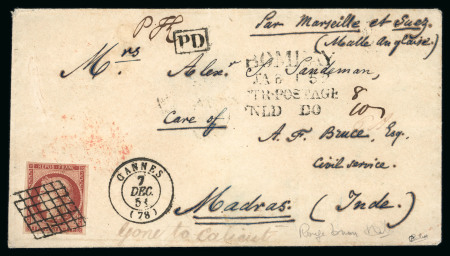 Par Marseille et Suez
(Malle Anglaise.)
PD
Mrs Alexr S. Sandeman,
BOMBAY
8
10
Care of
A. F. Bruce, Esq.
Civil Service.
Madras (Inde.)
REPUB. FRANC.
CANNES
7
DEC.
51
(78)
Gone to Calicut